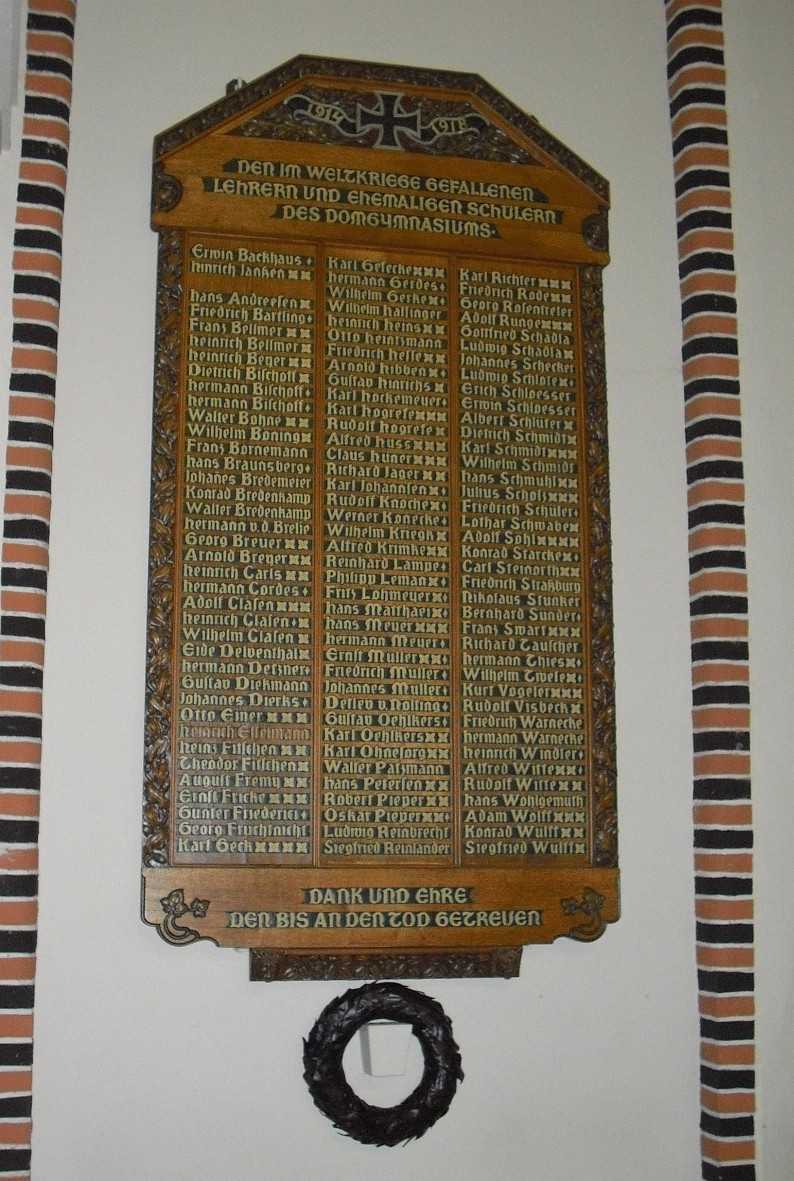 1914 1918
DEN IM WELTKRIEGE GEFALLENEN
LEHRERN UND EHEMALIGEN SCHÜLERN
DES DOMGYMNASIUMS
Erwin Backhaus
Hinrich Janßen
Hans Andreesen
Friedrich Bartling
Franz Bellmer
Heinrich Bellmer
Heinrich Beyer
Dietrich Bischoff
Hermann Bischoff
Hermann Bischoff
Walter Bohne
Wilhelm Böning
Franz Bornemann
Hans Braunsberg
Johanes Bredemeier
Konrad Bredenkamp
Walter Bredenkamp
Hermann v.d. Brelie
Georg Breuer
Arnold Breyer
Heinrich Carls
Hermann Cordes
Adolf Clasen
Heinrich Clasen
Wilhelm Clasen
Eide Delventhal
Hermann Detzner
Gustav Diekmann
Johannes Dierks
Otto Einer
Heinrich Esselmann
Heinz Fitschen
Theodor Fitschen
August Fremy
Ernst Fricke
Günter Friederici
Georg Fruchtnicht
Karl Geck
Karl Gesecke
Hermann Gerdes
Wilhelm Gerke
Wilhelm Hallinger
Heinrich Heins
Otto Heintzmann
Friedrich Hesse
Arnold Hibben
Gustav Hinrichs
Karl Hockemeyer
Karl Hogrefe
Rudolf Hogrefe
Alfred Huss
Claus Huner
Richard Jager
Karl Johannsen
Rudolf Knoche
Werner Konecke
Wilhelm Kriegk
Alfred Krimke
Reinhard Lampe
Philipp Leman
Fritz Lohmeyer
Hans Matthaei
Hans Meyer
Hermann Meyer
Ernst Müller
Friedrich Müller
Johannes Müller
Detlev v. Nolting
Gustav Oehlkers
Karl Oehlkers
Karl Ohnesorg
Walter Patzmann
Hans Petersen
Robert Pieper
Oskar Pieper
Ludwig Reinbrecht
Siegfried Reinländer
Karl Richter
Friedrich Rode
Georg Rosentreter
Adolf Runge
Gottfried Schadla
Ludwig Schadla
Johannes Schecker
Ludwig Schlote
Erich Schloesser
Erwin Schloesser
Albert Schlüter
Dietrich Schmidt
Karl Schmidt
Wilhelm Schmidt
Hans Schmuhl
Julius Scholz
Friedrich Schüler
Lothar Schwabe
Adolf Sohl
Konrad Starcke
Carl Steinorth
Friedrich Straßburg
Nikolaus Stünker
Bernhard Sünder
Franz Swart
Richard Tauscher
Hermann Thies
Wilhelm Twele
Kurt Vogeler
Rudolf Visbeck
Friedrich Warnecke
Hermann Warnecke
Heinrich Windler
Alfred Witte
Rudolf Witte
Hans Wohlgemuth
Adam Wolff
Konrad Wulff
Siegfried Wulff
DANK UND EHRE
DEN BIS AN DEN TOD GETREUEN